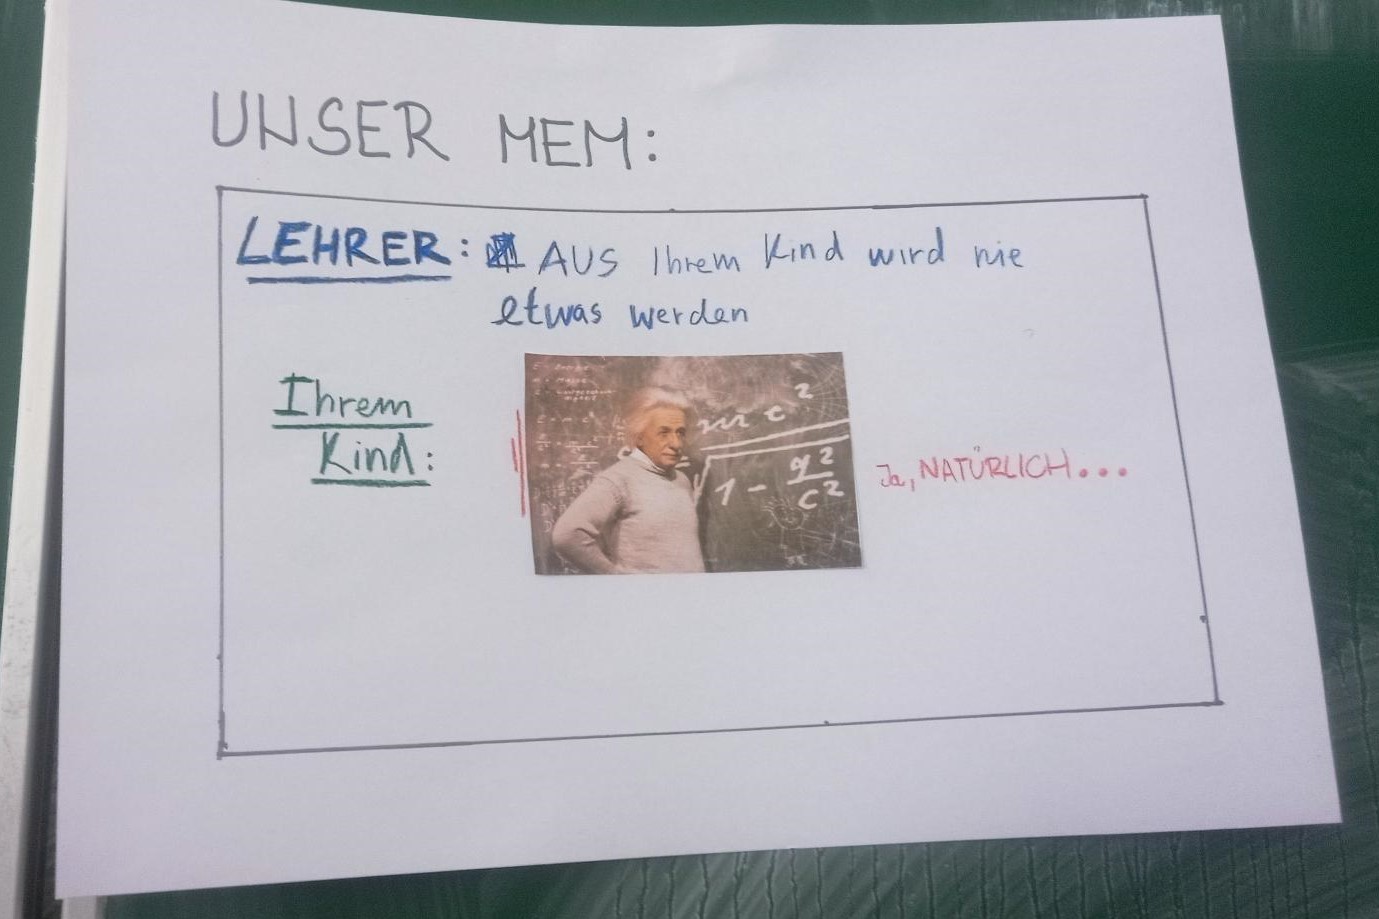 UNSER MEM:
LEHRER: AUS Ihrem Kind wird nie
etwas werden
Ihrem
Kind:
m c 2
1 - q2
c2
Ja, NATÜRLICH...